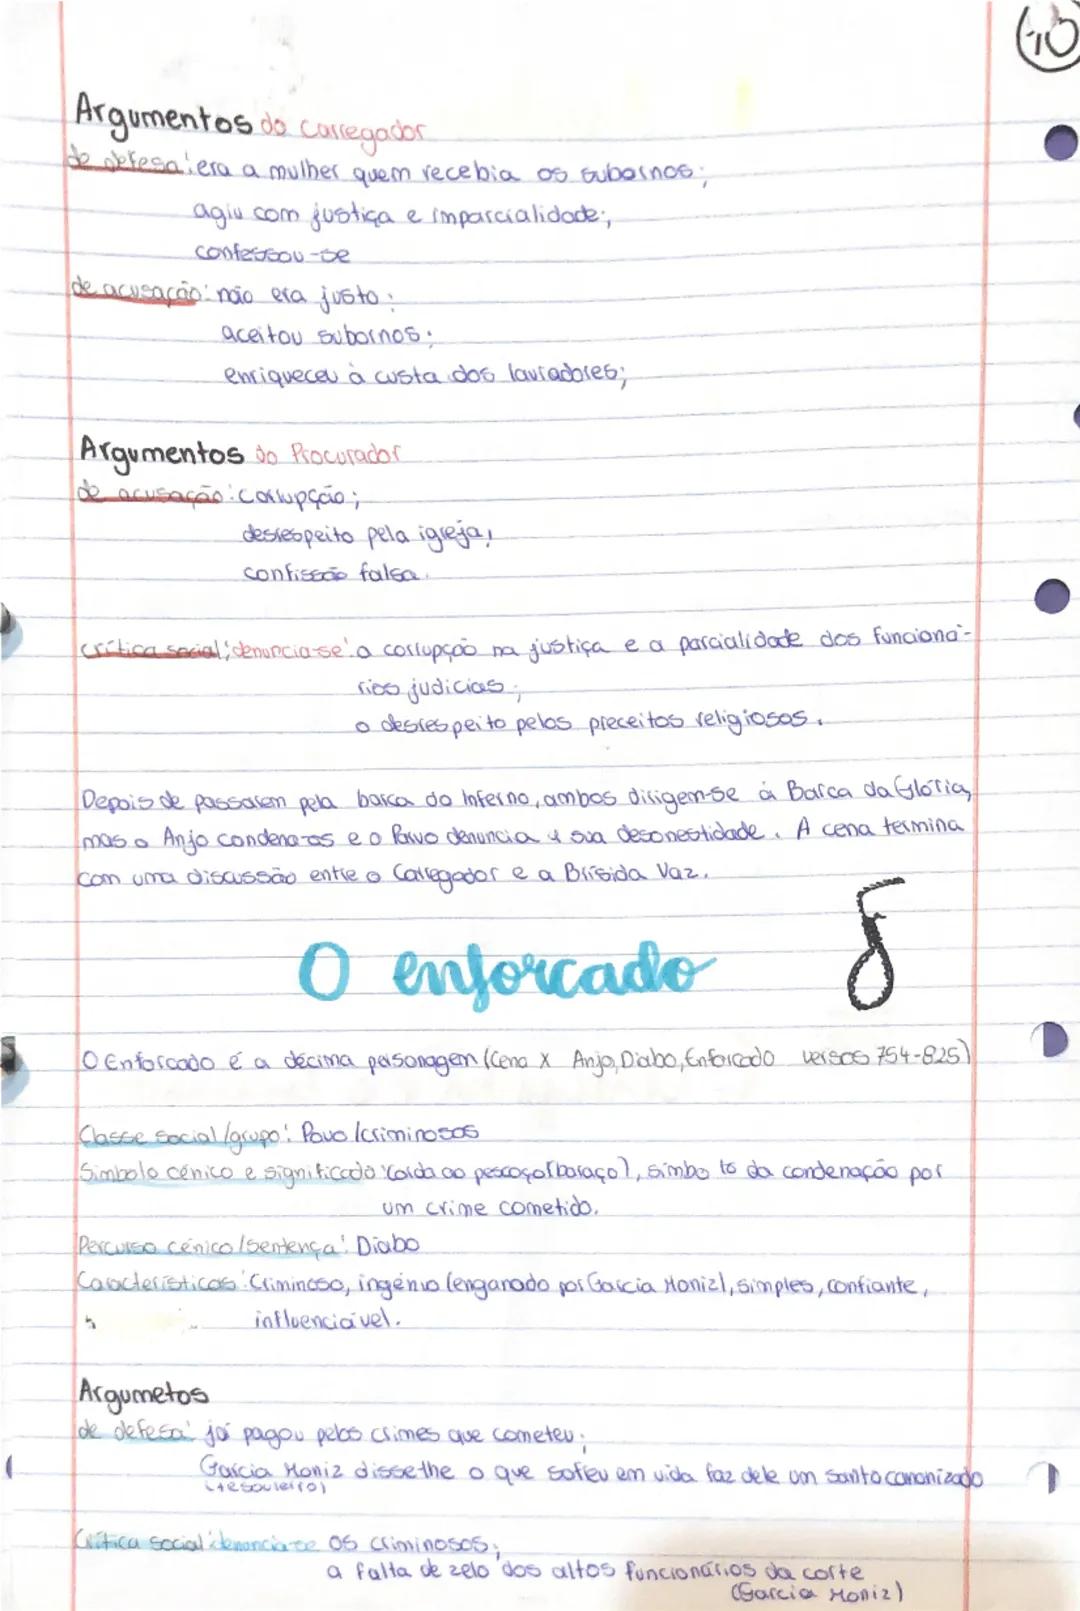 10
Argumentos do Corregedor
de defesa: era a mulher quem recebia os subornos;
agiu com justiça e imparcialidade;
confessou-se
de acusação: não era justo;
aceitou subornos;
enriqueceu à custa dos lavradores;
Argumentos do Procurador
de acusação: corrupção;
desrespeito pela igreja,
confissão falsa.
crítica social; denuncia-se: a corrupção na justiça e a parcialidade dos funcioná-
rios judicias;
o desrespeito pelos preceitos religiosos.
Depois de passarem pela barca do Inferno, ambos dirigem-se à Barca da Glória,
mas o Anjo condena-os e o Parvo denuncia a sua desonestidade. A cena termina
com uma discussão entre o Corregador e a Brísida Vaz.
O enforcado
O Enforcado é a décima personagem (Cena X Anjo, Diabo, Enforcado versos 754-825)
Classe social/grupo: Povo/criminosos
Símbolo cénico e significado: corda ao pescoço (baraço), símbolo da condenação por
um crime cometido.
Percurso cénico/Sentença: Diabo
Características: Criminoso, ingénuo (enganado por Garcia Moniz), simples, confiante,
influenciável.
Argumetos
de defesa: já pagou pelos crimes que cometeu;
Garcia Moniz disse-lhe o que sofreu em vida faz dele um santo canonizado
(tesouleiro)
Crítica social: denuncia-se os criminosos;
a falta de zelo dos altos funcionários da corte
(Garcia Moniz)